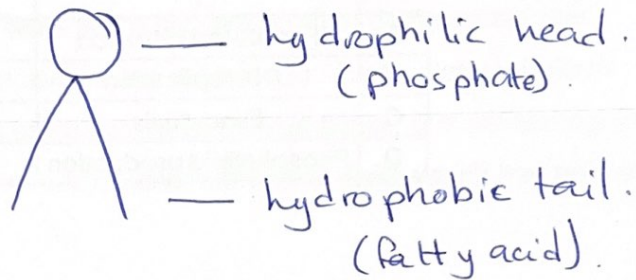 hydrophilic head.
(phosphate).
hydrophobic tail.
(fatty acid).